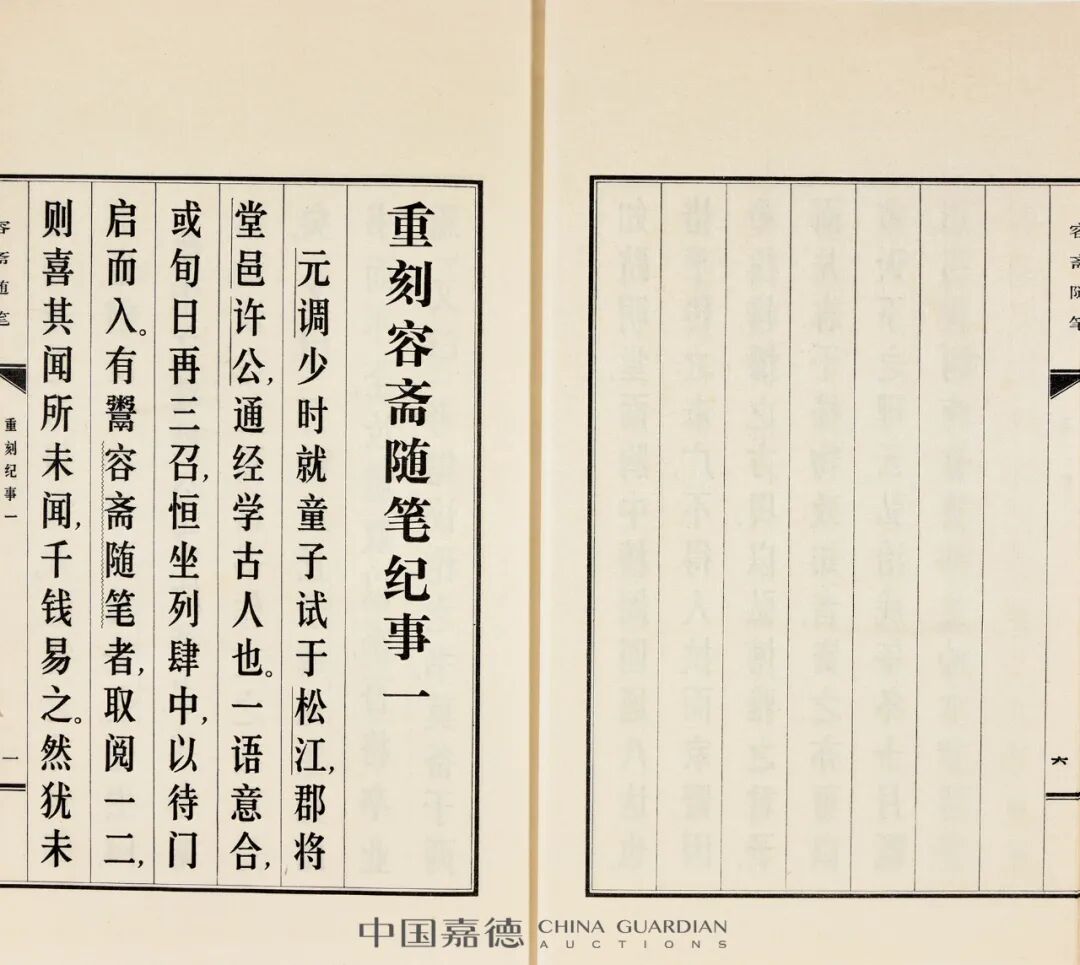 重刻容斋随笔纪事一
元调少时就童子试于松江，郡将
堂邑许公，通经学古人也。一语意合，
或旬日再三召，恒坐列肆中，以待门
启而入。有鬻容斋随笔者，取阅一二，
则喜其闻所未闻，千钱易之。然犹未
容斋随笔
重刻纪事一
一
容斋随笔
六
中国嘉德 CHINA GUARDIAN
AUCTIONS